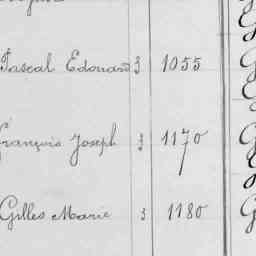 Pascal Edouard 3 1055
François Joseph 3 1170
Gilles Marie 3 1180